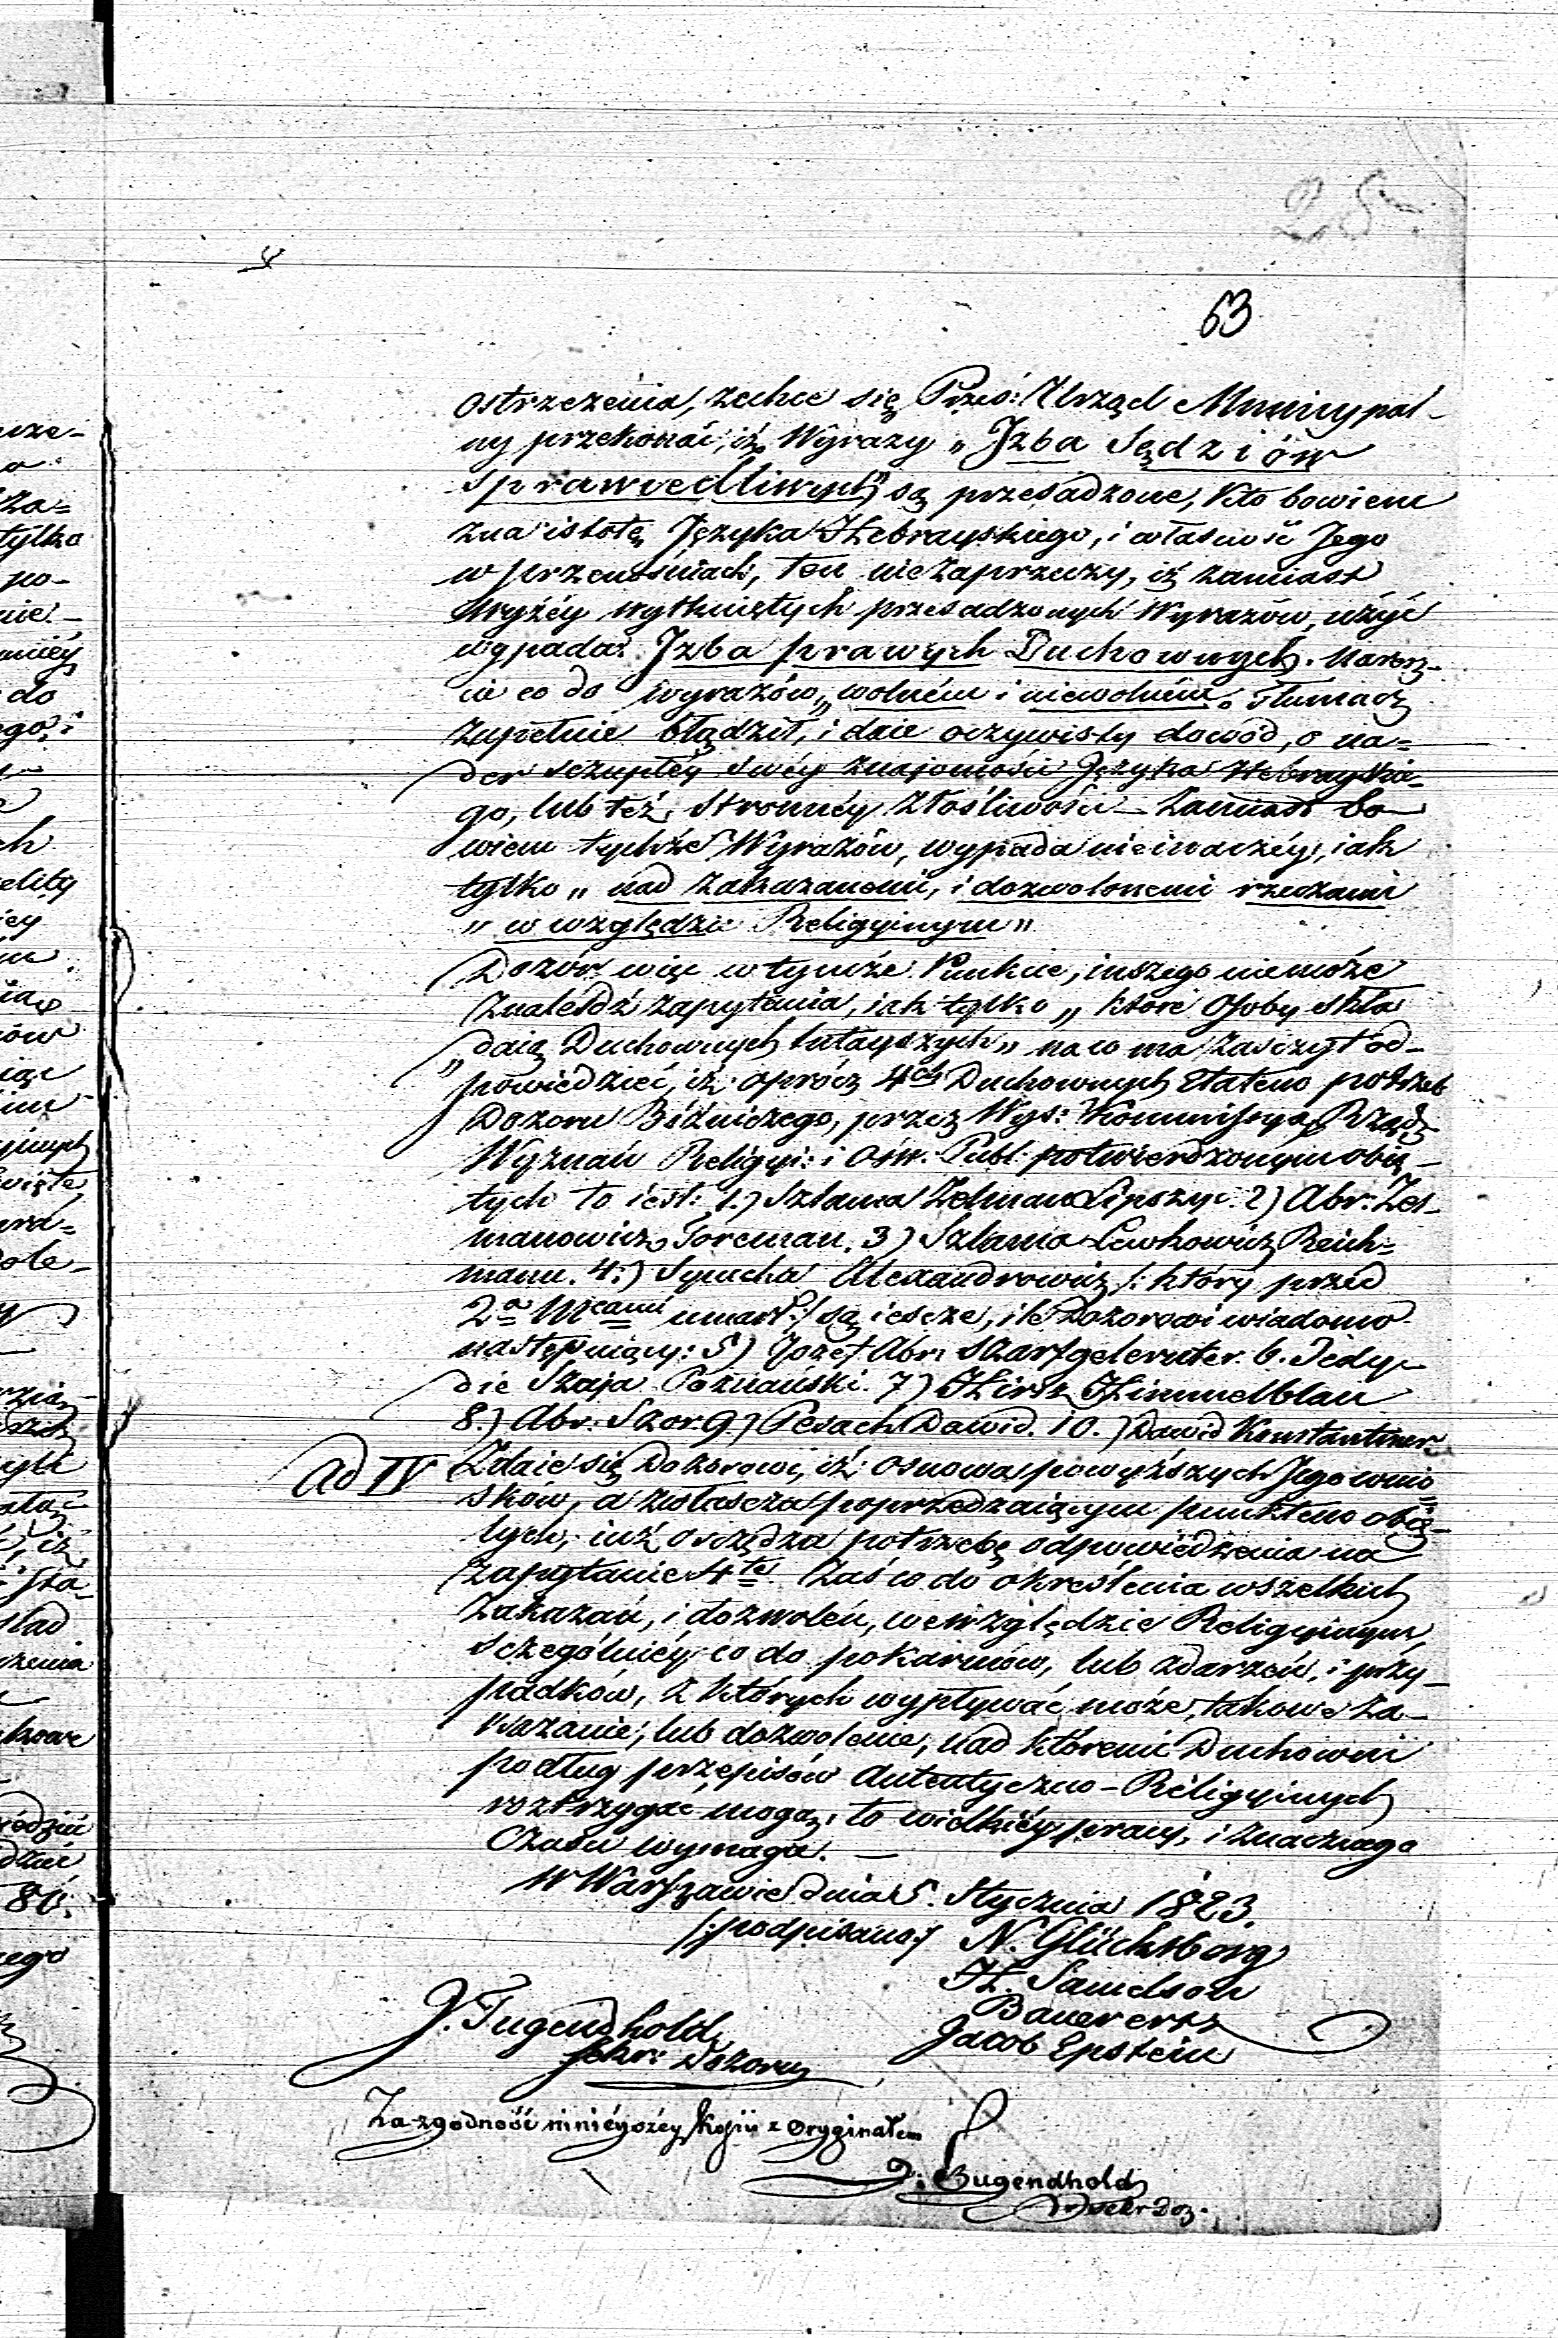 25
63
ostrzeżenia, zechce się Prześ: Urząd Municypal-
ny przekonać, iż Wyrazy „Jzba Sędziów
Sprawiedliwych” są przesadzone, Kto bowiem
zna istotę Języka Hebrayskiego, i własność Jego
w przenośniach, ten nie zaprzeczy, iż zamiast
wyżéy wytkniętych przesadzonych Wyrazów, użyć
wypada: Jzba prawych Duchownych. Naresz-
cie co do wyrazów „wolném i niewolném” Tłumacz
zupełnie błądził, i daie oczywisty dowód, o na=
der sczupłéy swéy znajomości Języka Hebrayskie-
go, lub też, stronnéy złośliwości – Zamiast bo-
wiem tychże Wyrazów, wypada nieinaczéy, iak
tylko „nad zakazanemi, i dozwolonemi rzeczami
„w względzie Religyinym”
Dozór więc w tymże Punkcie, inszego niemoże
znaleśdź zapytania, iak tylko „które Osoby skła
„daią Duchownych tutayszych” na co ma zasczyt od-
powiedzieć, iż oprócz 4ch Duchownych Etatem potrzeb
Dozoru Bóżniczego, przez Wys: Kommissyą Rząd:
Wyznań Religyi: i Ośw: Publ: potwierdzonym obię-
tych to iest: 1.) Szlama Zelman Lipszyc. 2) Abr: Zel-
manowicz Toreman. 3) Szlama Lewkowicz Reich=
mann. 4.) Symcha Alexandrowicz /: który przed
2a Mcami umarł :/ są iescze, ile Dozorowi wiadomo
następuiący: 5) Jozef Abr: Szarfgelernter. 6. Jedy-
die Szaja Poznański. 7) Hirsz Himmelblau
8.) Abr: Skor. 9.) Pesach Dawid. 10.) Dawid Konstantiner.
ad IV Zdaie się Dozorowi, iż osnowa powyższych Jego wnio
sków, a zwłascza poprzedzaiącym punktem obię-
tych, iuż osczędza potrzebę odpowiedzenia na
zapytanie 4te. Zaś co do określenia wszelkich
Zakazań, i dozwoleń, we względzie Religyinym,
sczególniéy co do pokarmów, lub zdarzeń, i przy-
padków, z których wypływać może, takowe za-
kazanie, lub dozwolenie, nad któremi Duchowni
podług przepisów Autentyczno-Religyinych
roztrzygać mogą, to wielkiéy pracy, i znacznego
Czasu wymaga. —
w Warszawie dnia 5. Stycznia 1823.
/: podpisano :/ N. Glücksberg
H. Samelson
Bauererz
Jacob Epstein
J. Tugendhold
Sekr: Dozoru
Za zgodność ninieyszéy Kopii z Oryginałem
J: Tugendhold
Sekr Doz.